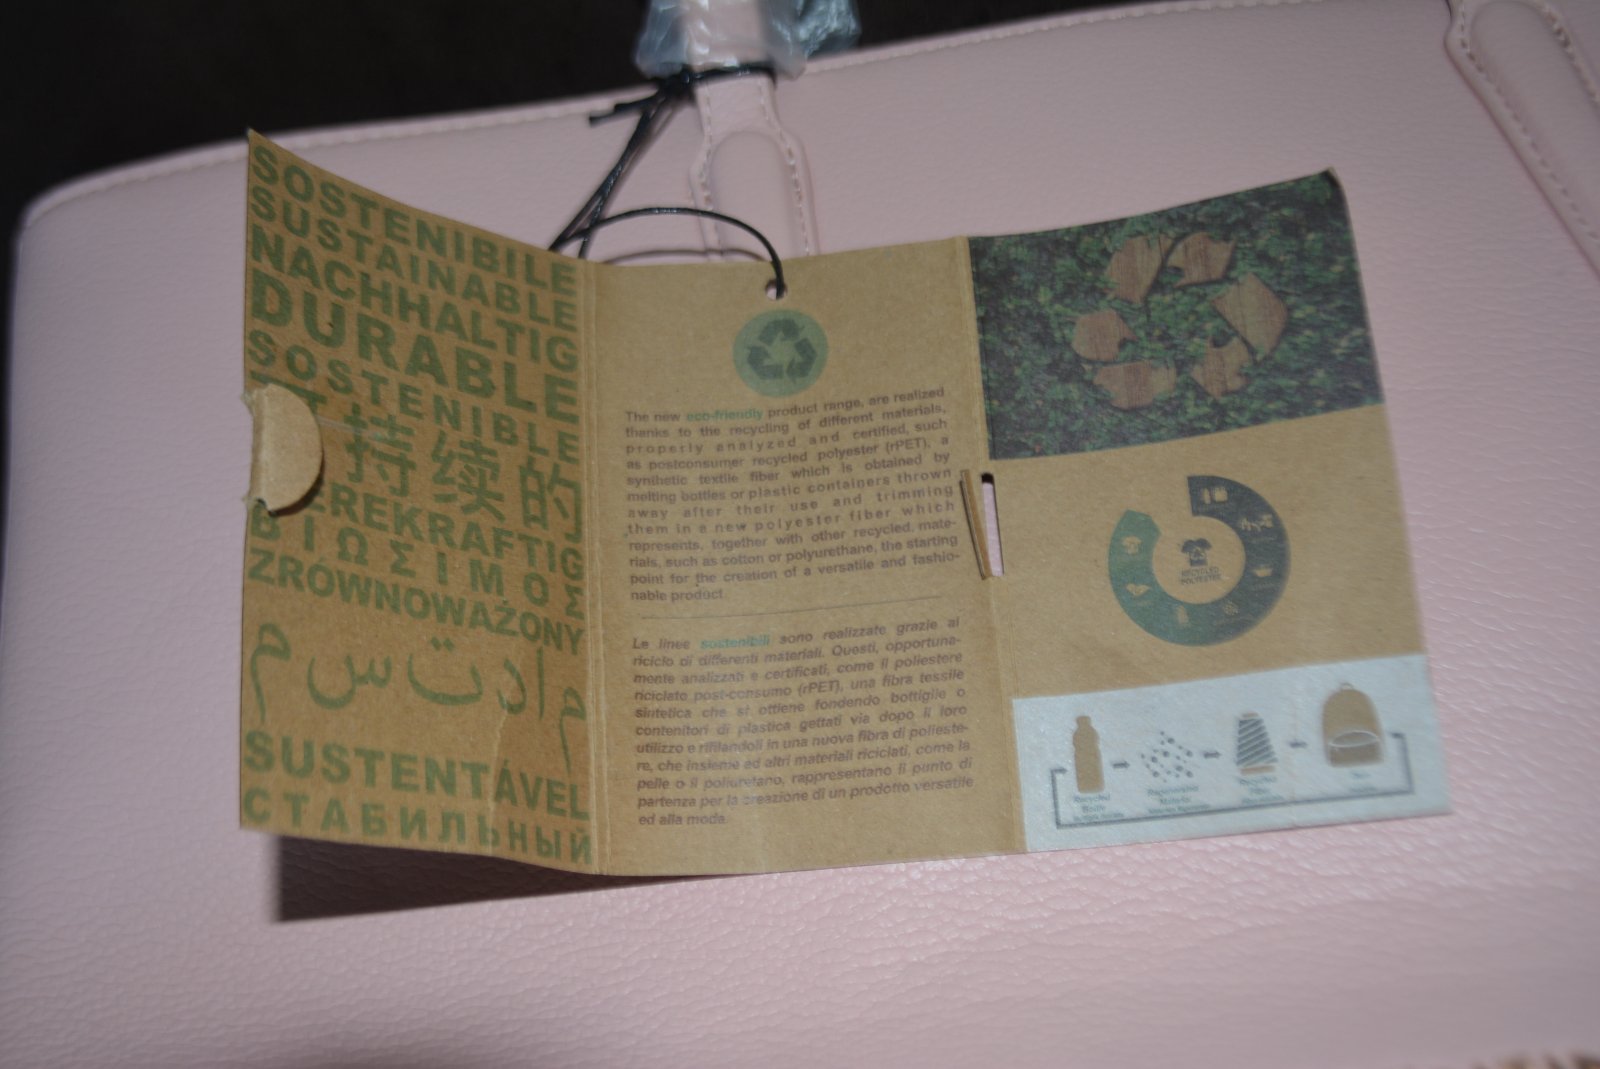 SOSTENIBILE
SUSTAINABLE
NACHHALTIG
DURABLE
SOSTENIBLE
持续的
EREKRAFTIG
ΒΙΩΣΙΜΟΣ
ZRÓWNOWAŻONY
م ا د ت س م
SUSTENTÁVEL
СТАБИЛЬНЫЙ
The new eco-friendly product range, are realized
thanks to the recycling of different materials,
properly analyzed and certified, such
as postconsumer recycled polyester (rPET), a
synthetic textile fiber which is obtained by
melting bottles or plastic containers thrown
away after their use and trimming
them in a new polyester fiber which
represents, together with other recycled, mate-
rials, such as cotton or polyurethane, the starting
point for the creation of a versatile and fashio-
nable product.
Le linee sostenibili sono realizzate grazie al
riciclo di differenti materiali. Questi, opportuna-
mente analizzati e certificati, come il poliestere
riciclato post-consumo (rPET), una fibra tessile
sintetica che si ottiene fondendo bottiglie o
contenitori di plastica gettati via dopo il loro
utilizzo e rifilandoli in una nuova fibra di polieste-
re, che insieme ad altri materiali riciclati, come la
pelle o il poliuretano, rappresentano il punto di
partenza per la creazione di un prodotto versatile
ed alla moda.
RECYCLED
POLYESTER
Recycled
Bottle
Regenerated
Material
Recycled
Fiber